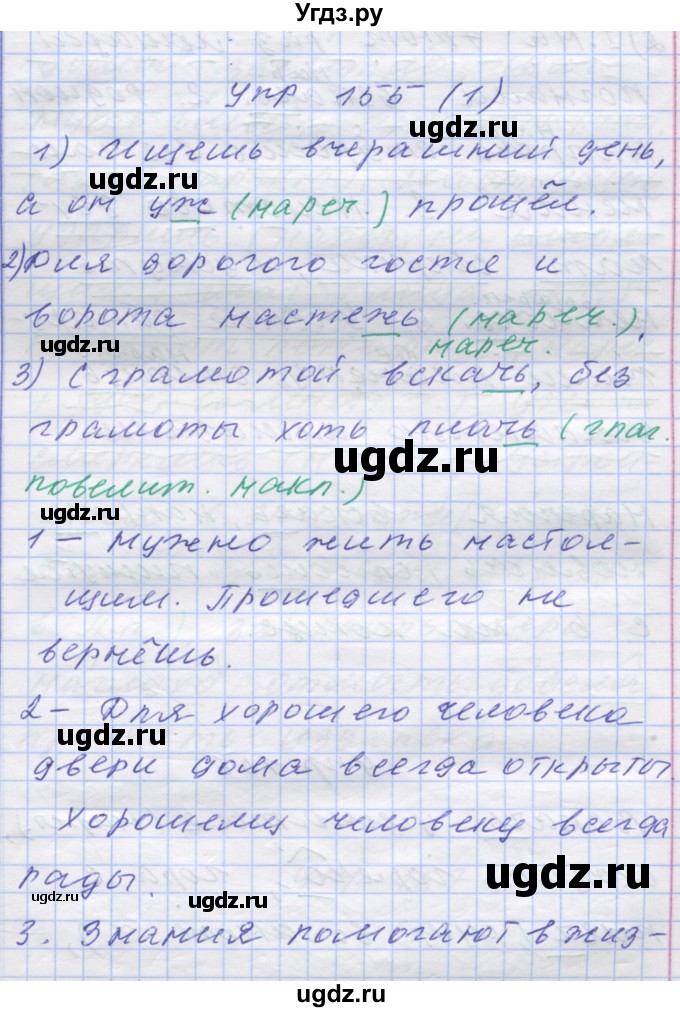 Угдз.ру
упр 155 (1)
ugdz.ru
1) Ищешь вчерашний день,
ugdz.ru
а он уж (нареч.) прошёл.
ugdz.ru
2) Для дорогого гостя и
ugdz.ru
ворота настежь (нареч.).
ugdz.ru
нареч.
3) С грамотой вскачь, без
грамоты хоть плачь (глаг.
ugdz.ru
повелит. накл.)
ugdz.ru
1 – Нужно жить настоя-
щим. Прошедшего не
ugdz.ru
вернёшь.
2 – Для хорошего человека
ugdz.ru
ugdz.ru
двери дома всегда открыты.
Хорошему человеку всегда
ugdz.ru
рады.
ugdz.ru
ugdz.ru
3. Знания помогают в жиз-
ugdz.ru